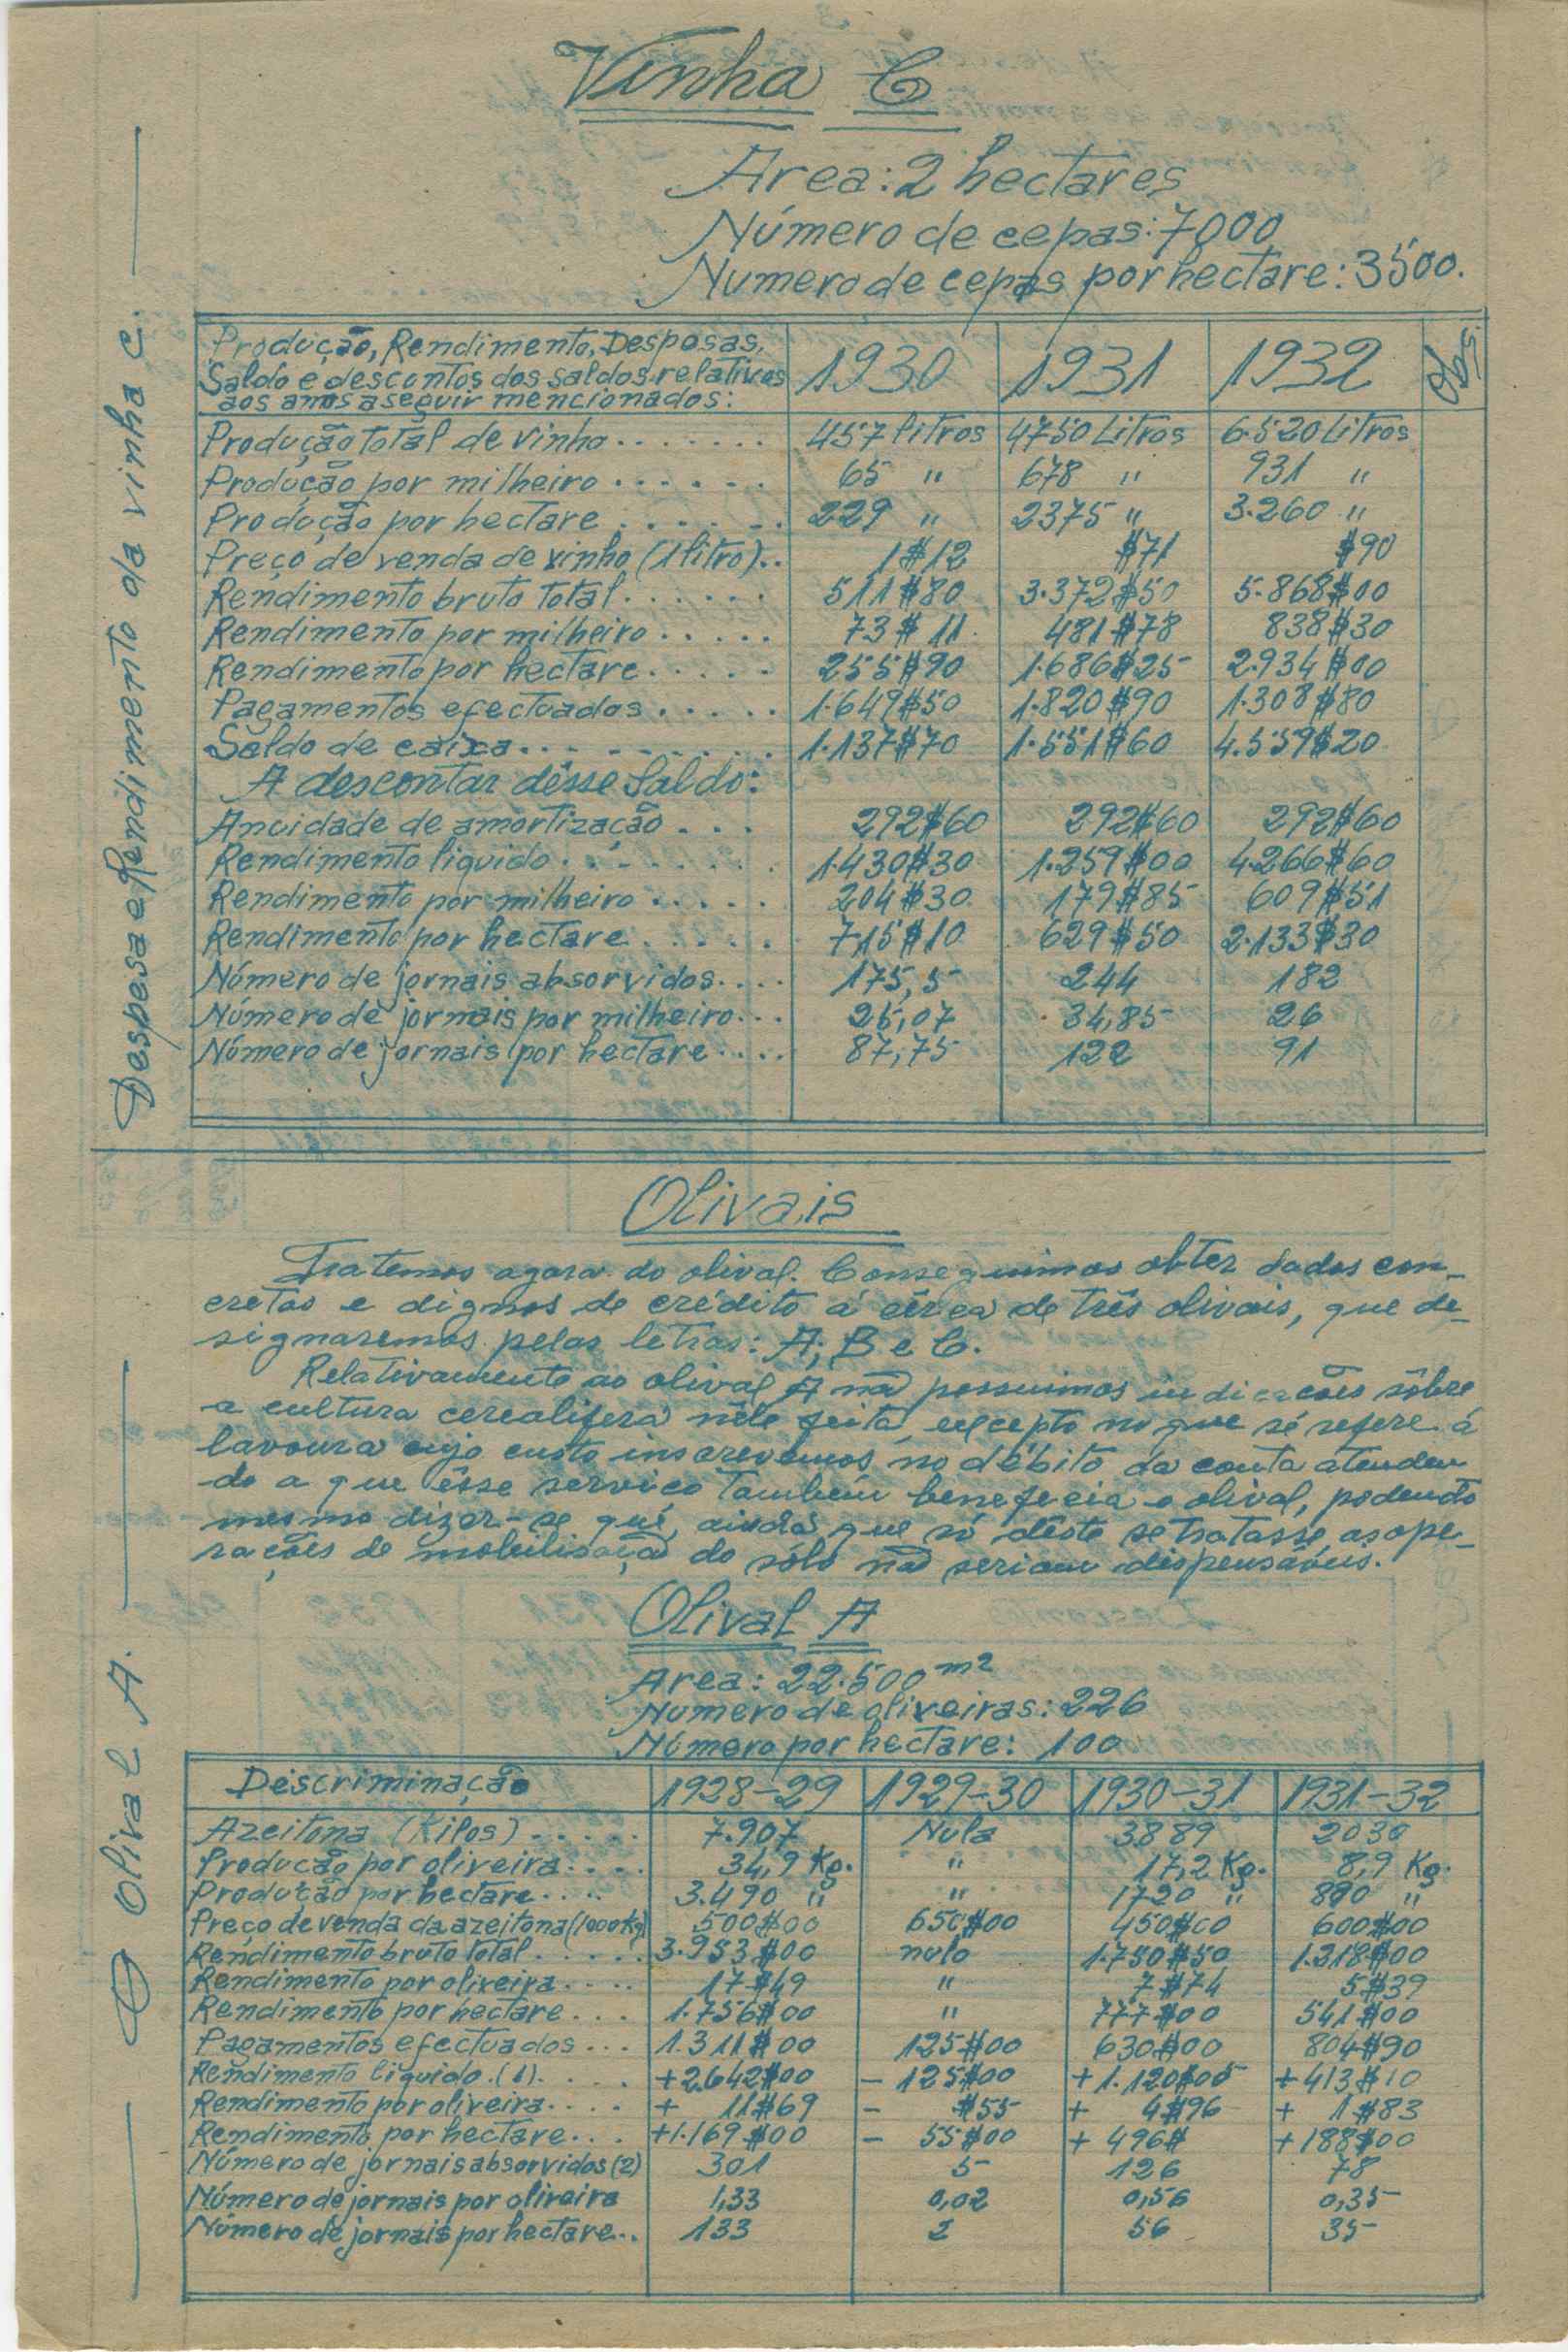 Vinha C
Area: 2 hectares
Número de cepas: 7000
Numero de cepas por hectare: 3500.
Despesa e Rendimento da vinha C.
Produção, Rendimento, Despesas, 1930 1931 1932 Obs.
Saldo e descontos dos saldos relativos
aos anos a seguir mencionados:
Produção total de vinho....... 457 litros 4750 Litros 6.520 Litros
Produção por milheiro...... 65 " 678 " 931 "
Produção por hectare...... 229 " 2375 " 3.260 "
Preço de venda de vinho (1 litro).. 1$12 $71 $90
Rendimento bruto total...... 511$80 3.372$50 5.868$00
Rendimento por milheiro..... 73$11. 481$78 838$30
Rendimento por hectare..... 255$90 1.686$25 2.934$00
Pagamentos efectuados..... 1.649$50 1.820$90 1.308$80
Saldo de caixa......... 1.137$70 1.551$60 4.559$20
A descontar dêsse Saldo:
Anuidade de amortização... 292$60 292$60 292$60
Rendimento liquido....... 1.430$30 1.259$00 4.266$60
Rendimento por milheiro...... 204$30. 179$85 609$51
Rendimento por hectare...... 715$10 629$50 2.133$30
Número de jornais absorvidos.... 175,5 244 182
Número de jornais por milheiro... 25,07 34,85 26
Número de jornais por hectare.... 87,75 122 91
Olivais
Tratemos agora do olival. Conseguimos obter dados con-
cretos e dignos de crédito á cêrca de três olivais, que de-
signaremos pelas letras: A; B e C.
Relativamente ao olival A não possuimos indicações sôbre
a cultura cerealifera nêle feita, excepto no que se refere á
lavoura cujo custo inscrevemos no débito da conta atenden
do a que êsse serviço tambêm beneficia o olival, podendo
mesmo dizer-se que, ainda que só dêste se tratasse, as ope-
rações de mobilisação do sólo não seriam dispensáveis.
O Olival A.
Olival A
Area: 22.500 m2
Numero de oliveiras: 226
Número por hectare: 100
Discriminação 1928-29 1929-30 1930-31 1931-32
Azeitona (Kilos)..... 7.907 Nula 3889 2030
Produção por oliveira.... 34,9 Kg. " 17,2 Kg. 8,9 Kg.
Produção por hectare.... 3.490 " " 1720 " 890 "
Preço de venda da azeitona (1000 Kg) 500$00 650$00 450$00 600$00
Rendimento bruto total...... 3.953$00 nulo 1.750$50 1.218$00
Rendimento por oliveira..... 17$49 " 7$74 5$39
Rendimento por hectare.... 1.756$00 " 777$00 541$00
Pagamentos efectuados... 1.311$00 125$00 630$00 804$90
Rendimento liquido.(1)..... +2.642$00 - 125$00 +1.120$05 +413$10
Rendimento por oliveira.... + 11$69 - $55 + 4$96 + 1$83
Rendimento por hectare... +1.169$00 - 55$00 + 496$ +188$00
Número de jornais absorvidos (2) 301 5 126 78
Número de jornais por oliveira 1,33 0,02 0,56 0,35
Número de jornais por hectare.. 133 2 56 35